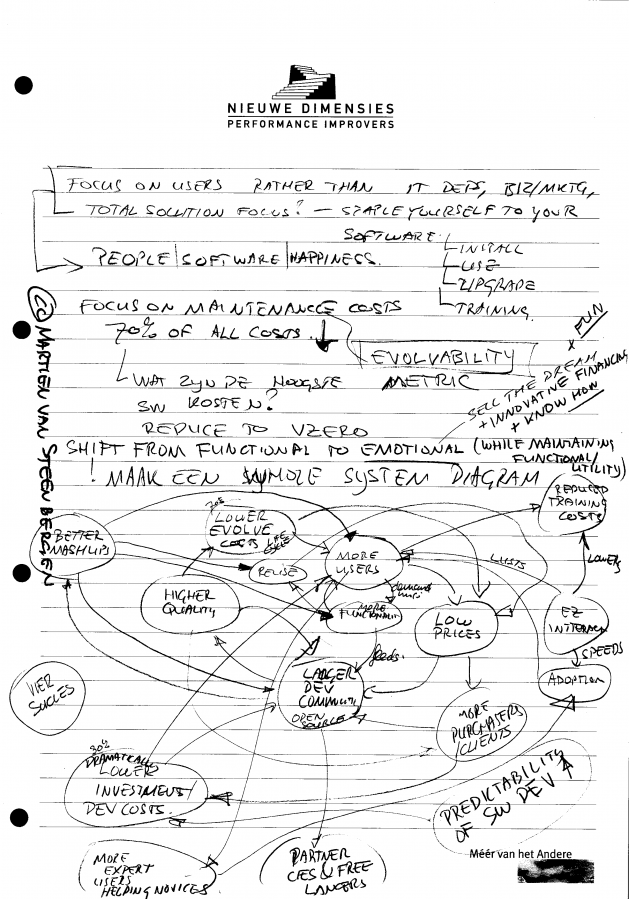 NIEUWE DIMENSIES
PERFORMANCE IMPROVERS
FOCUS ON USERS RATHER THAN IT DEPS, BIZ/MKTG,
TOTAL SOLUTION FOCUS? — STAPLE YOURSELF TO YOUR
SOFTWARE
INSTALL
PEOPLE | SOFTWARE | HAPPINESS.
USE
UPGRADE
TRAINING
(CC) MARTIEN VAN STEENBERGEN
FOCUS ON MAINTENANCE COSTS
70% OF ALL COSTS ↓
EVOLVABILITY
METRIC
WAT ZIJN DE HOOGSTE
SW KOSTEN?
REDUCE TO VZERO
SELL THE DREAM
+ INNOVATIVE FINANCING
+ KNOW HOW
x FUN
SHIFT FROM FUNCTIONAL TO EMOTIONAL (WHILE MAINTAINING
FUNCTIONAL/
UTILITY)
! MAAK EEN WHOLE SYSTEM DIAGRAM
REDUCED
TRAINING
COSTS
LOWER
EVOLVE
COSTS
BETTER
MASHUPS
REUSE
MORE
USERS
LOWERS
HIGHER
QUALITY
demand
MORE
FUNCTIONALITY
LOW
PRICES
EZ
SPEEDS
feeds.
LARGER
DEV
COMMUNITY
OPEN
SOURCE
ADOPTION
VIER
SUCCES
MORE
PURCHASERS
/CLIENTS
DRAMATICALLY
LOWER
INVESTMENT/
DEV COSTS.
PREDICTABILITY
OF SW DEV
MORE
EXPERT
USERS
HELPING NOVICES
PARTNER
CIES & FREE
LANCERS
Méér van het Andere